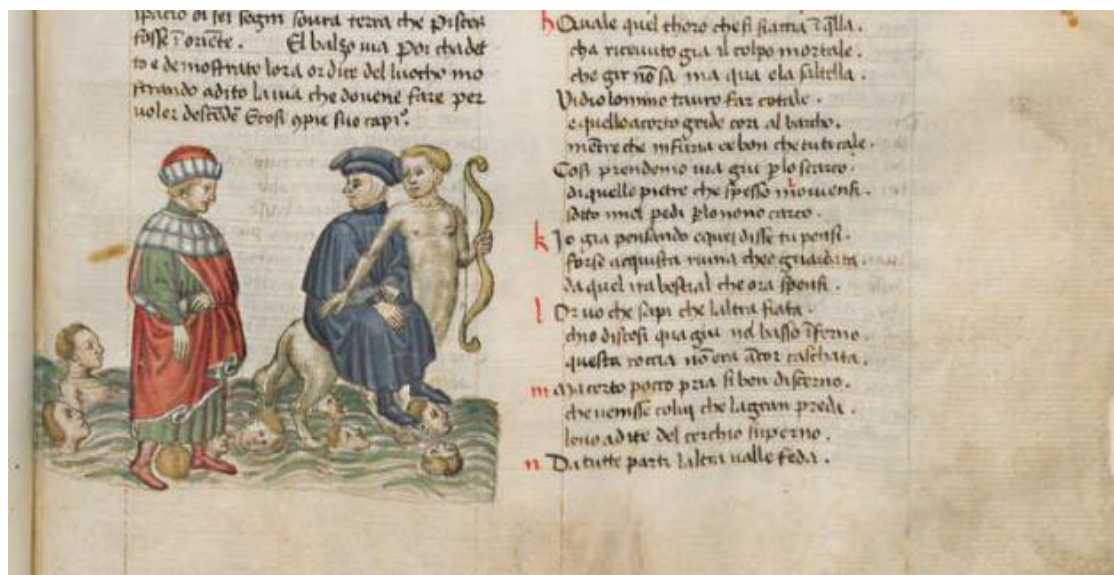 spacio di sei segni soura terra che pisces
fosse ī oriēte . El balço uia poi cha det
to e demostrato lora or dice del luocho mo
strando adito la uia che douene fare per
uoler descēde Et cosi 9pie suo capi°.
h Quale quel thoro che si slacia ī q̄lla .
cha riceuuto gia il colpo mortale .
che gir nō sa ma qua e la saltella .
Vidio lo mino tauro far cotale .
e quello acorto gride cori al uarcho .
mētre che infuria e bon che tuti cale .
Cosi prendemo uia giu p lo scarco .
di quelle pietre che spesso mouensi .
sotto miei pedi p lo nouo carco .
k Io gia pensando e quei disse tu pensi .
forse a questa ruina che e guardata
da quel ira bestial che ora spensi .
l Or uo che sapi che laltra fiata .
chio discesi qua giu nel basso īferno .
questa roccia nō era ācor caschata .
m Ma certo pocco pria si ben discerno .
che uenisse colui che la gran preda .
leuo a dite del cerchio superno .
n Da tutte parti lalta ualle feda .